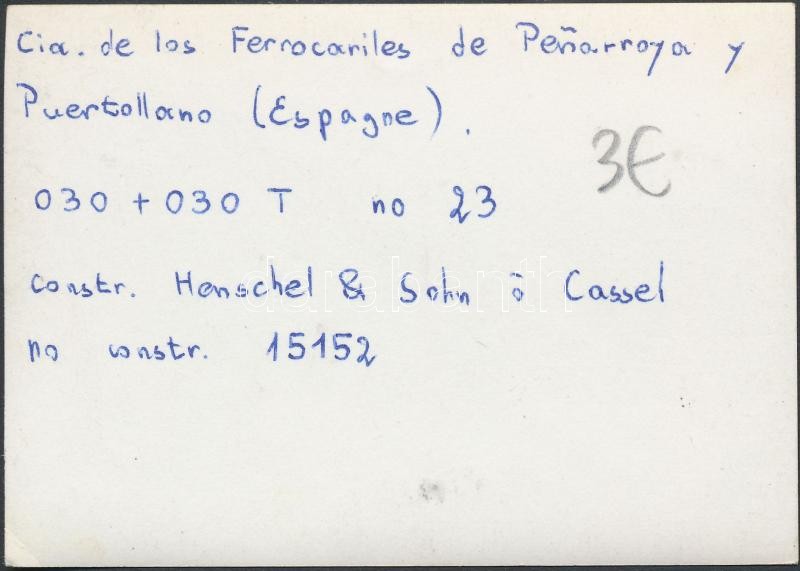 Cia. de los Ferrocariles de Peñarroya y
Puertollano (Espagne).
3€
030 + 030 T no 23
constr. Henschel & Sohn à Cassel
no constr. 15152
darabanth